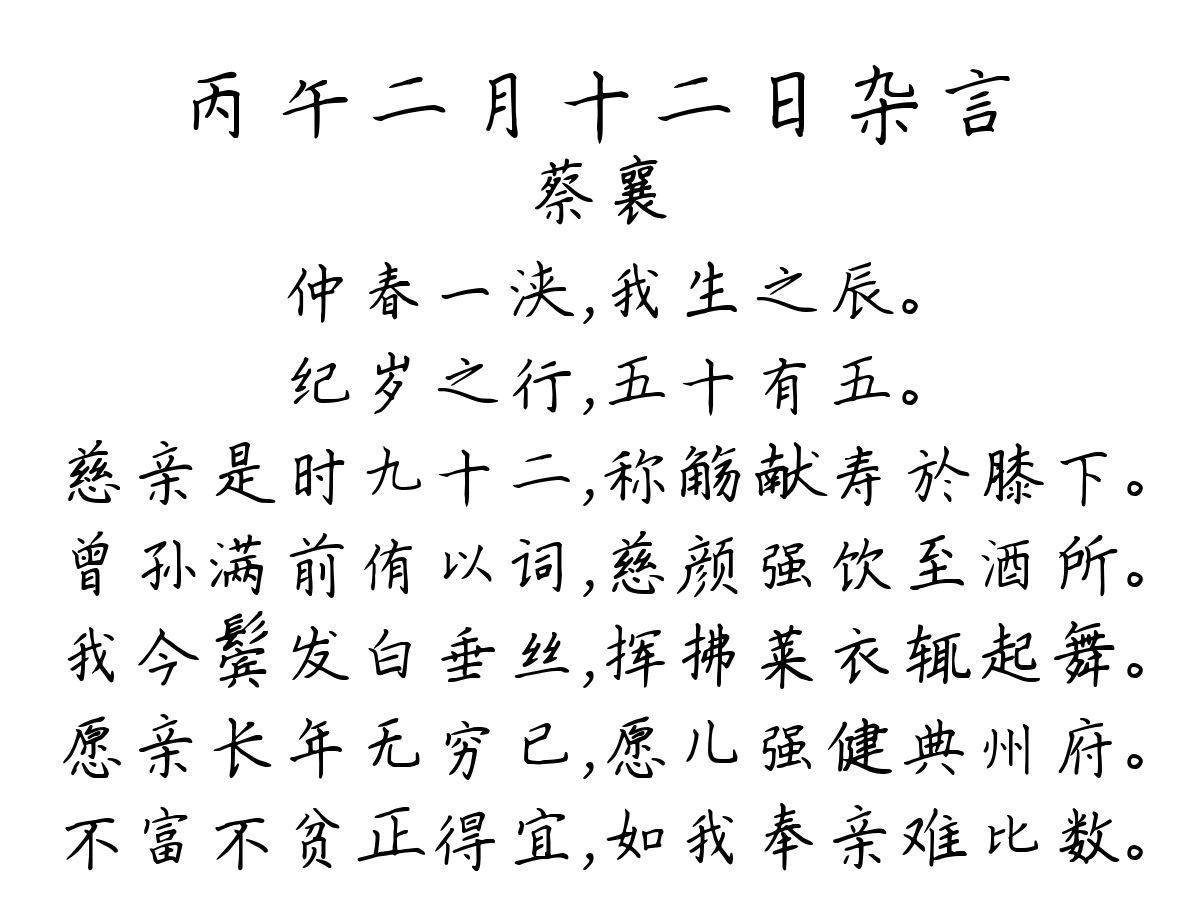 丙午二月十二日杂言
蔡襄
仲春一浃,我生之辰。
纪岁之行,五十有五。
慈亲是时九十二,称觞献寿於膝下。
曾孙满前侑以词,慈颜强饮至酒所。
我今鬓发白垂丝,挥拂莱衣辄起舞。
愿亲长年无穷已,愿儿强健典州府。
不富不贫正得宜,如我奉亲难比数。